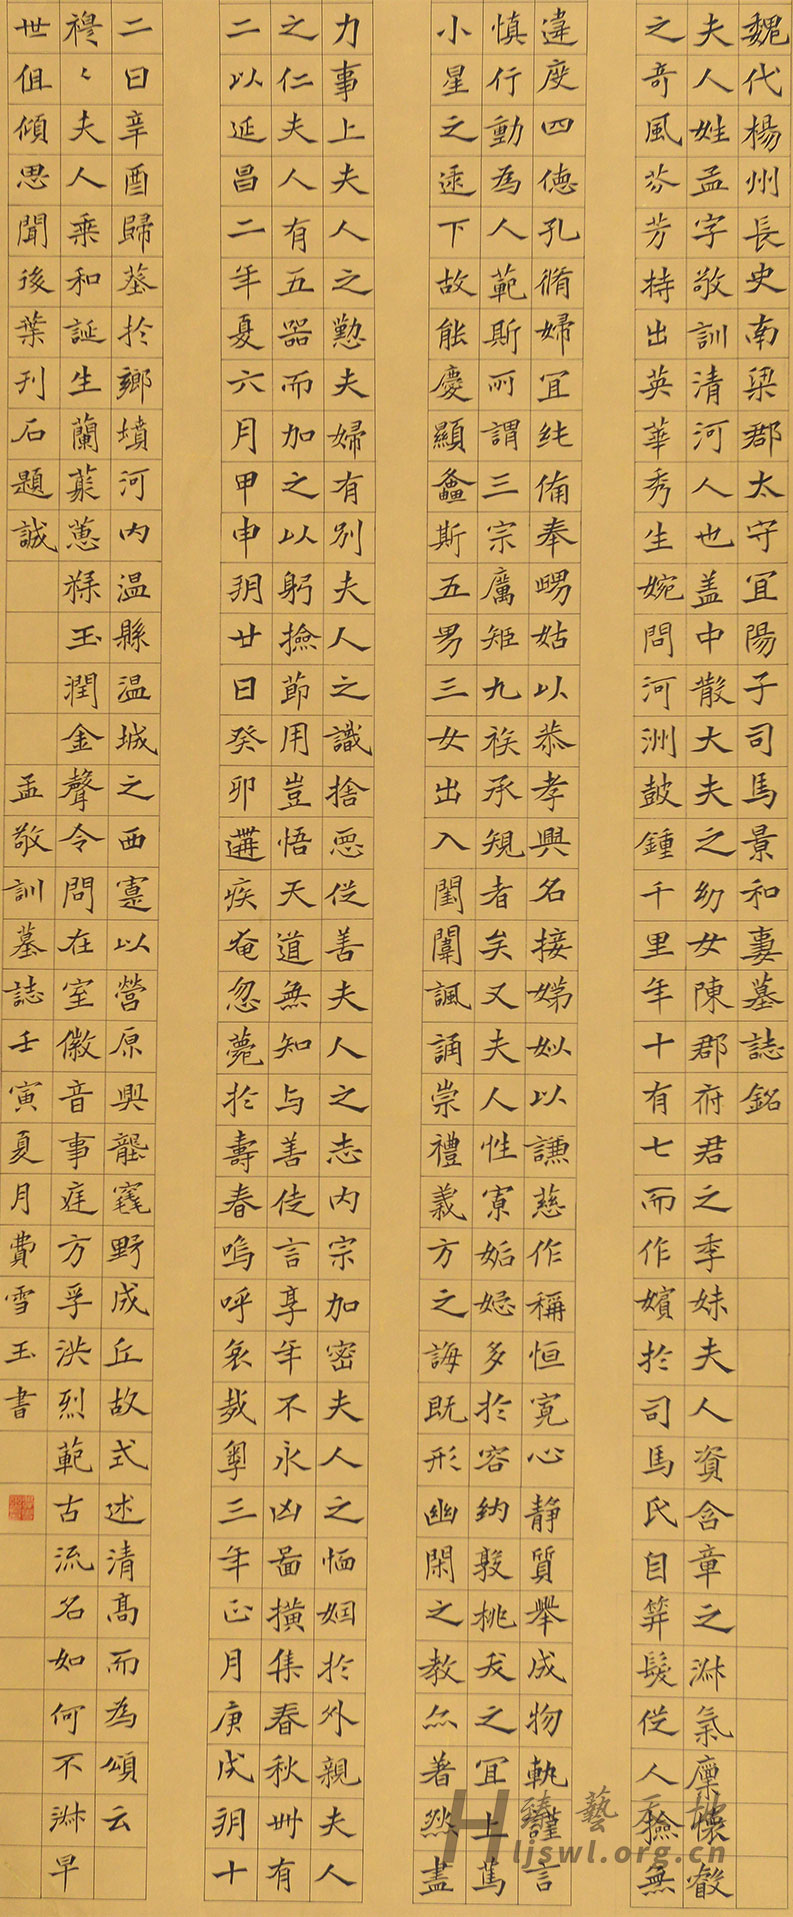 魏代楊州長史南梁郡太守宜陽子司馬景和妻墓誌銘
夫人姓孟字敬訓清河人也盖中散大夫之幼女陳郡府君之季妹夫人資含章之淋氣廩懷叡
之奇風芬芳特出英華秀生婉問河洲鼓鍾千里年十有七而作嬪於司馬氏自笄髮從人撿無
違度四德孔脩婦宜純備奉舅姑以恭孝興名接娣姒以謙慈作稱恒寬心静質舉成物軌謹言
慎行動為人範斯所謂三宗厲矩九族承規者矣又夫人性寡妬忌多於容納敦桃夭之宜上篤
小星之逮下故能慶顯螽斯五男三女出入閨闈諷誦崇禮義方之誨既形幽閑之教亦著然盡
力事上夫人之懃夫婦有別夫人之識捨惡從善夫人之志内宗加密夫人之恤姻於外親夫人
之仁夫人有五器而加之以躬撿節用豈悟天道無知与善徒言享年不永凶啚横集春秋卌有
二以延昌二年夏六月甲申玥廿日癸卯遘疾奄忽薨於壽春嗚呼哀哉粤三年正月庚戌玥十
二日辛酉歸塟於鄉墳河内温縣温城之西寔以營原興壟窀野成丘故式述清高而為頌云
穆〻夫人乘和誕生蘭蕠蕙䅼玉潤金聲令問在室徽音事庭方孚洪烈範古流名如何不淋早
世徂傾思聞後葉刋石題誠
孟敬訓墓誌壬寅夏月費雪玉書
臻藝天地
ljswl.org.cn